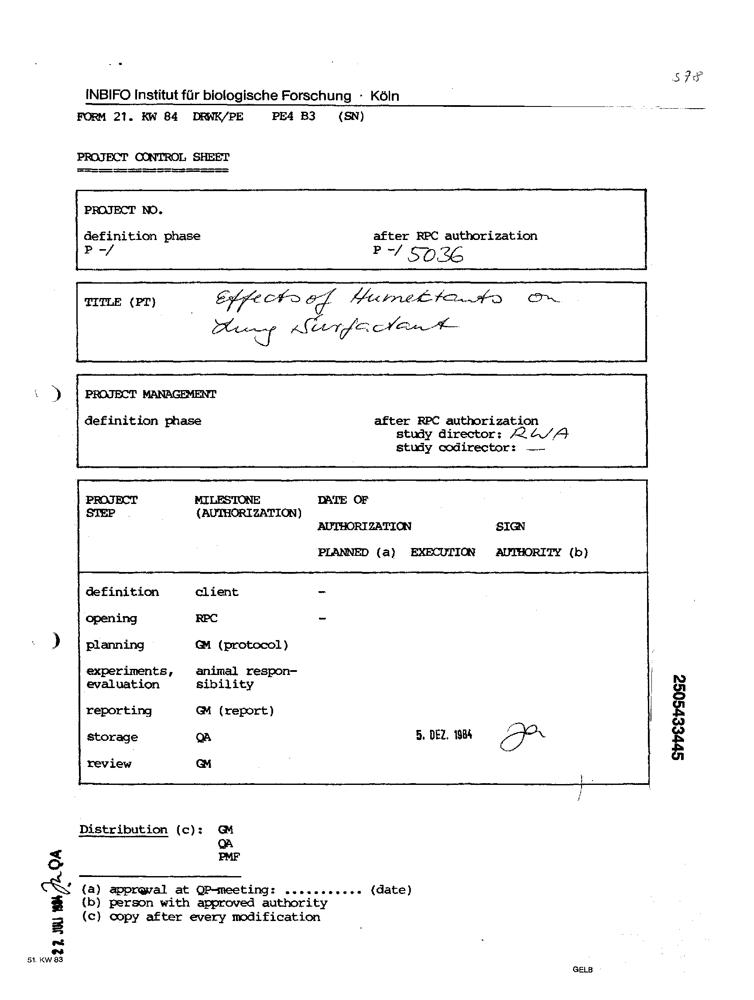 578
INBIFO Institut für biologische Forschung · Köln
FORM 21. KW 84 DRWK/PE PE4 B3 (SN)
PROJECT CONTROL SHEET
PROJECT NO.
definition phase after RPC authorization
P -/ P -/ 5036
TITLE (PT) Effects of Humektants on
Lung Surfactant
PROJECT MANAGEMENT
definition phase after RPC authorization
study director: RWA
study codirector: —
PROJECT MILESTONE DATE OF
STEP (AUTHORIZATION)
AUTHORIZATION SIGN
PLANNED (a) EXECUTION AUTHORITY (b)
definition client -
opening RPC -
planning GM (protocol)
experiments, animal respon-
evaluation sibility
reporting GM (report)
storage QA 5. DEZ. 1984
review GM
Distribution (c): GM
QA
PMF
(a) approval at QP-meeting: ........... (date)
(b) person with approved authority
(c) copy after every modification
51. KW 83
GELB
2505433445
JULI 1984 QA